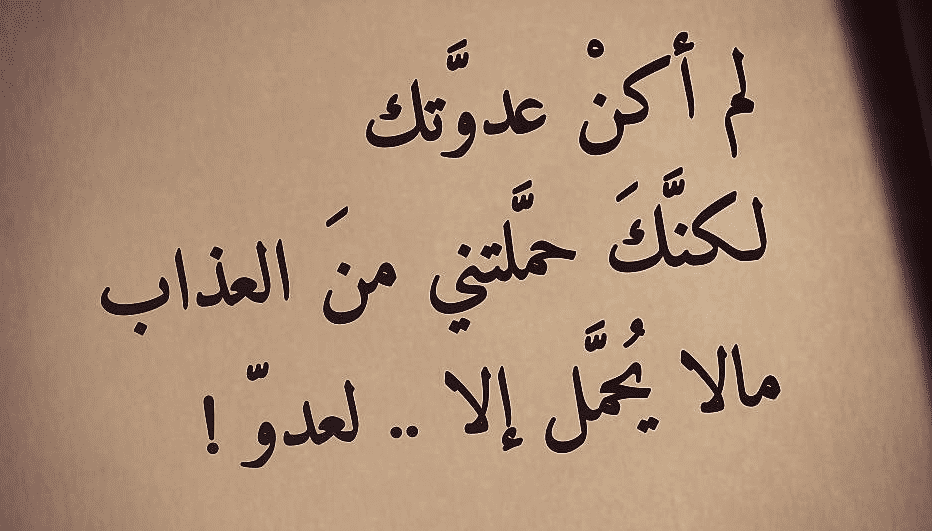 لم أكنْ عدوَّتك
لكنَّكَ حمَّلتني منَ العذاب
مالا يُحمَّل إلا .. لعدوّ !